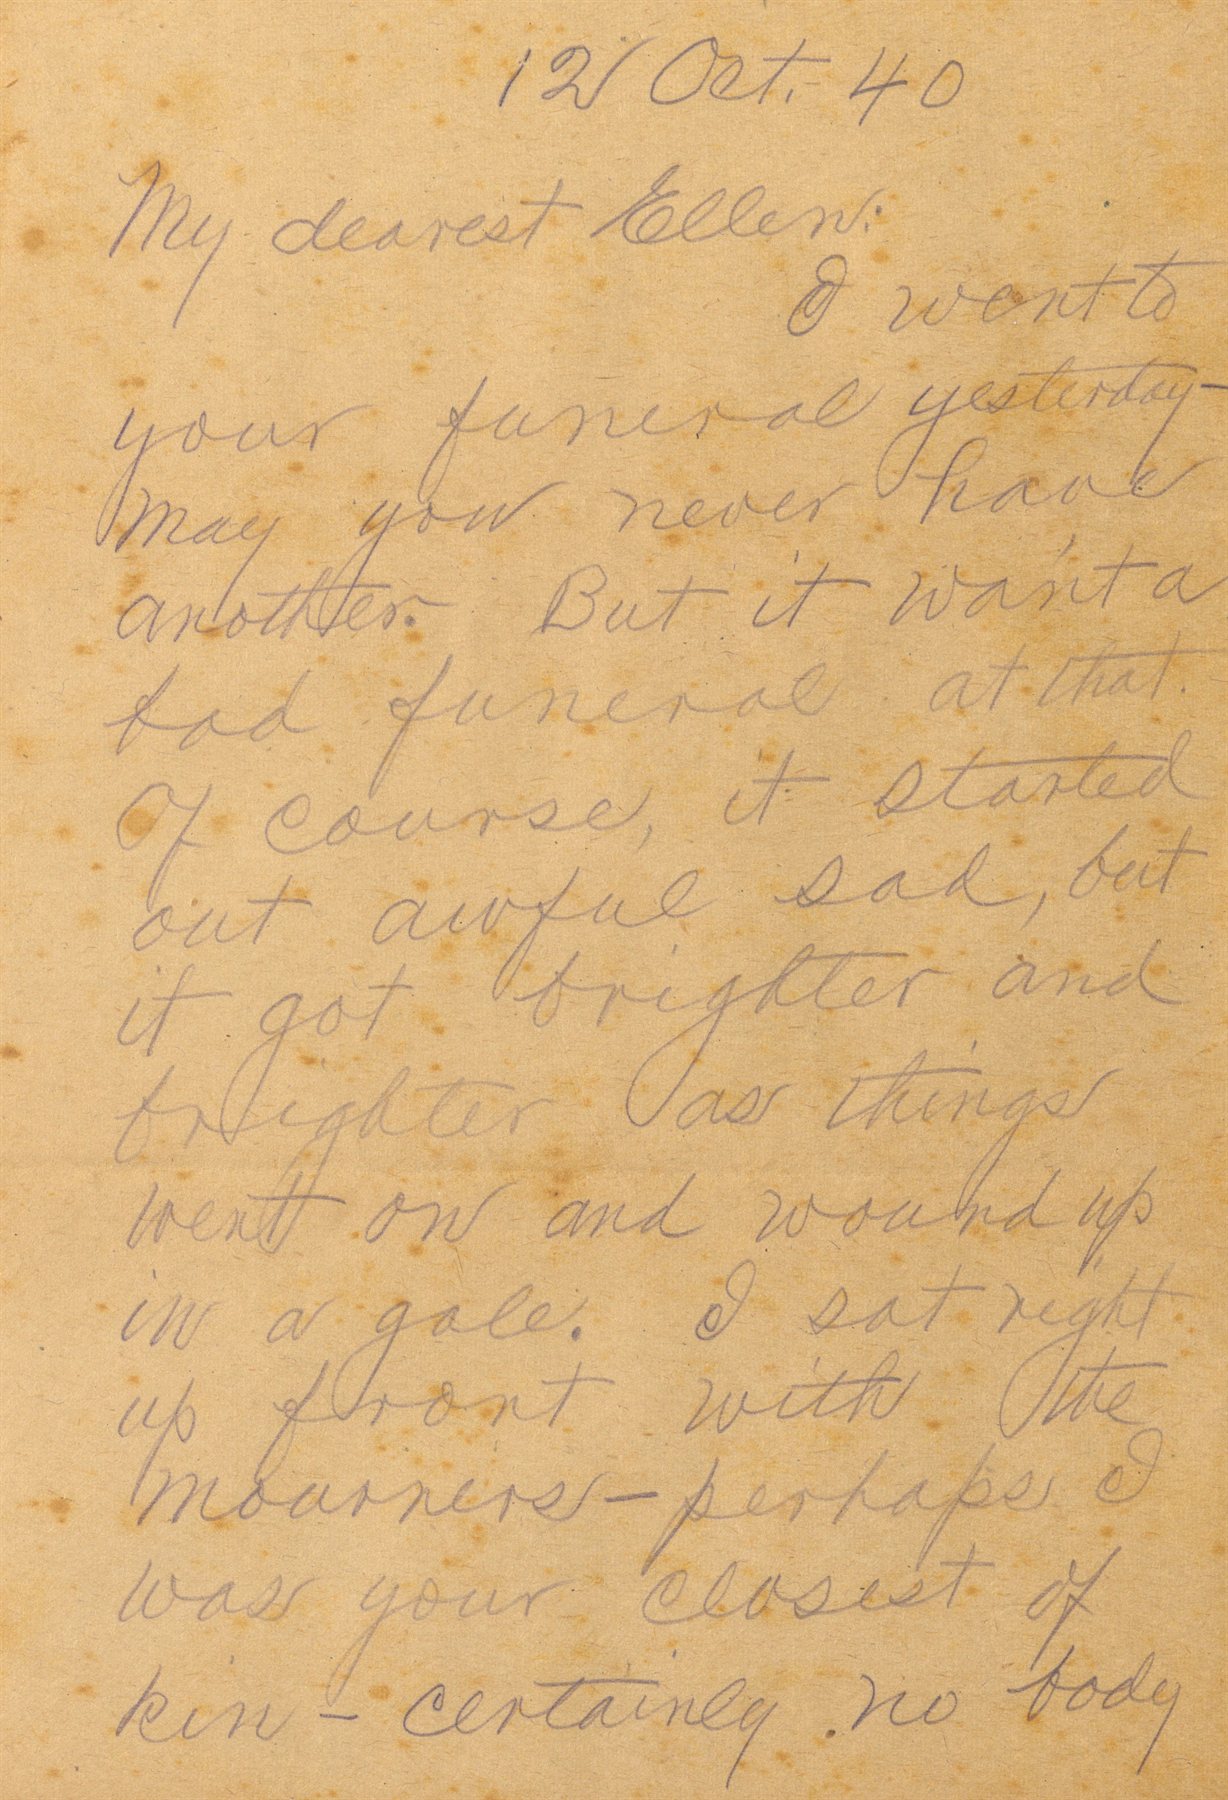 12 Oct. 40
My dearest Ellen:
I went to
your funeral yesterday—
May you never have
another. But it wa'nt a
bad funeral at that.
Of course, it started
out awful sad, but
it got brighter and
brighter as things
went on and wound up
in a gale. I sat right
up front with the
mourners — perhaps I
was your closest of
kin — certainly no body